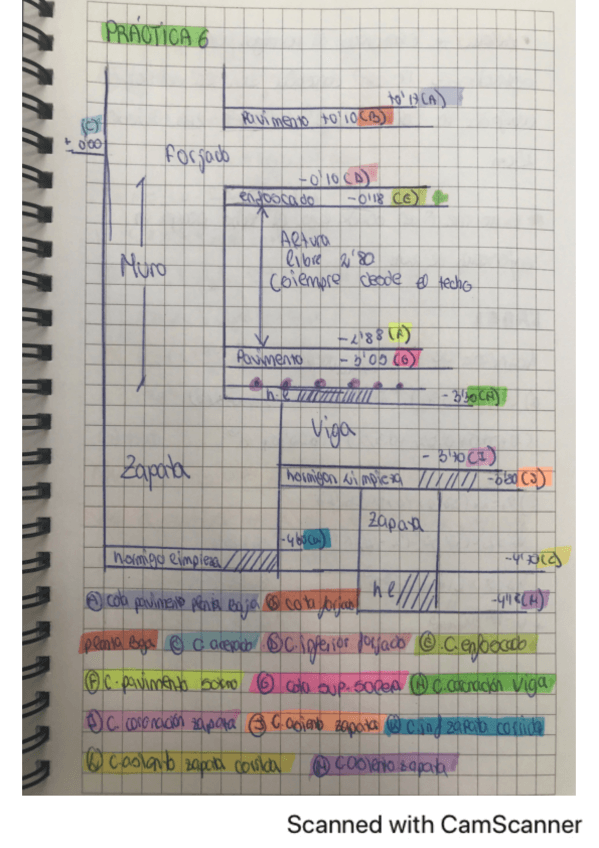 PRÁCTICA 6
+0'17 (A)
Pavimento +0'10 (B)
(C)
± 0'00
Forjado
-0'10 (D)
enfoscado -0'18 (E)
Muro
Altura
libre 2'80
(siempre desde el techo
(F)
Pavimento (G)
h.l
Viga
(I)
Zapata
hormigon limpieza (J)
zapata
hormigo limpieza
h l
(A) cota pavimento planta baja (B) cota forjado
planta baja (C) C. acerado (D) C. inferior forjado (E) C. enfoscado
(F) C. pavimento (G) cota sup. (H) C. coronación viga
(I) C. coronación zapata (J) C. asiento zapata C. inf zapata corrida
C. asiento zapata corrida C. asiento zapata
Scanned with CamScanner